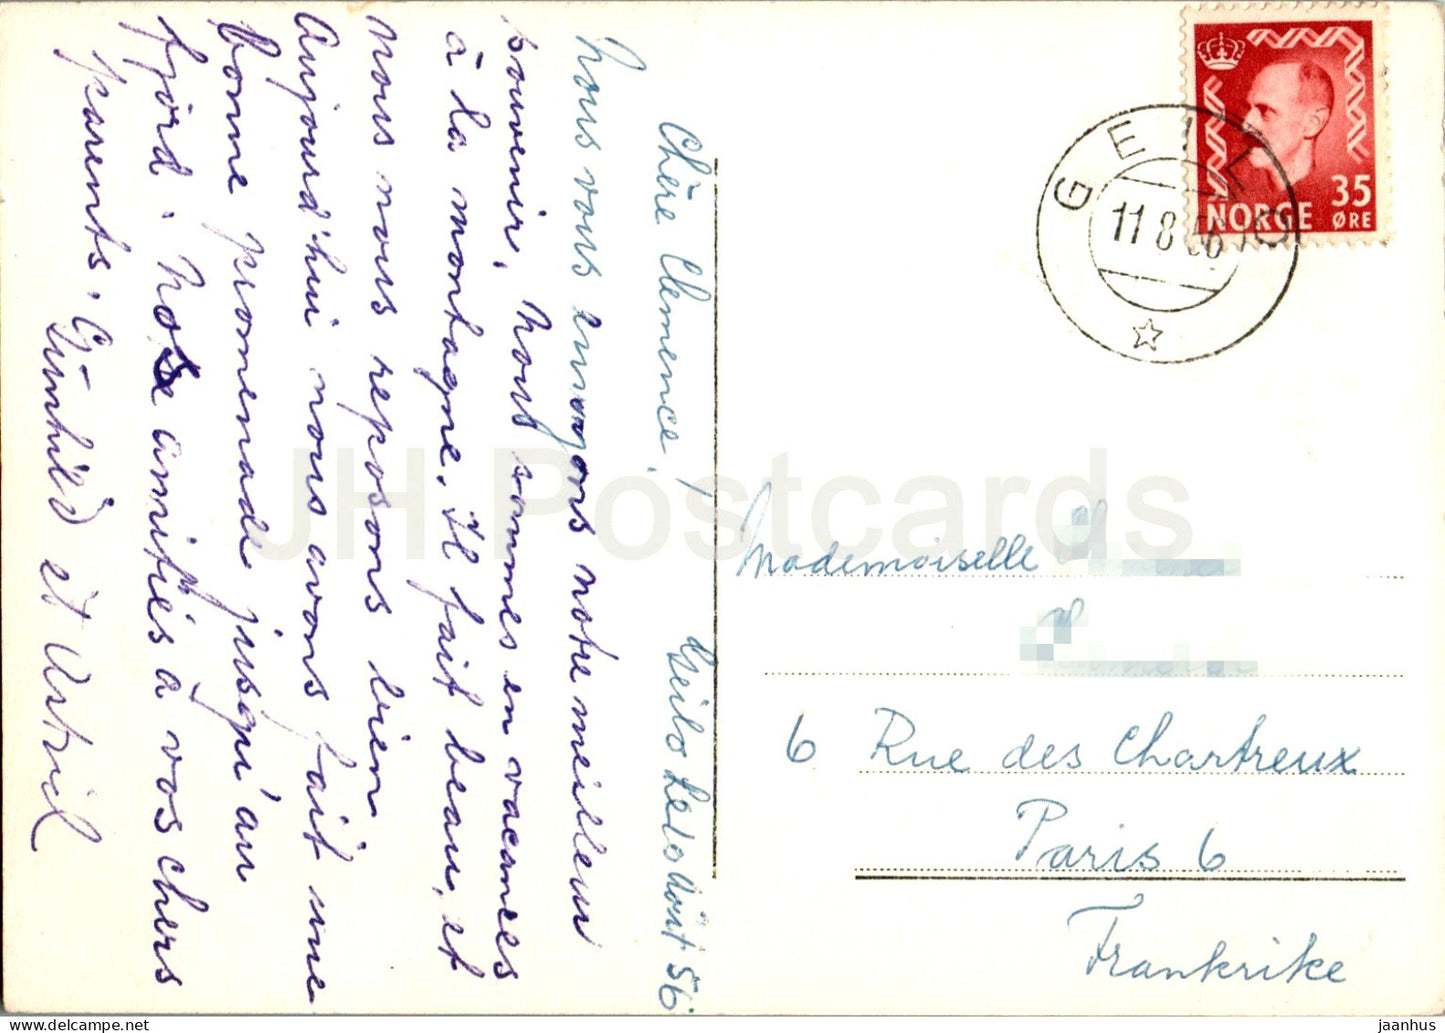 Geilo le 10 août 56
Chère Clémence,
Nous vous envoyons notre meilleur
souvenir. Nous sommes en vacances
à la montagne. Il fait beau, et
nous nous reposons bien.
Aujourd'hui nous avons fait une
bonne promenade jusqu'au
fjord. Nos amitiés à vos chers
parents. Gunhild et Astrid
NORGE 35
ØRE
GEILO
11 8 56
Mademoiselle
6 Rue des Chartreux
Paris 6
Frankrike
JH Postcards
jaanhus @ delcampe.net